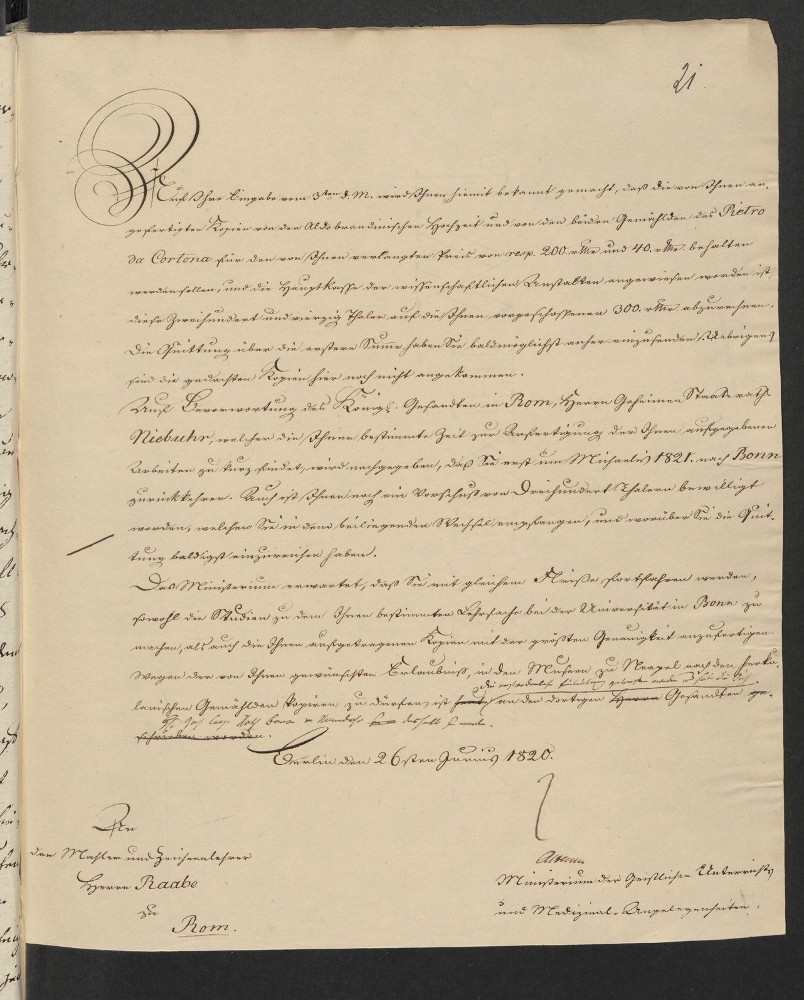 21.
Auf Ihre Eingabe vom 3ten d. M. wird Ihnen hiermit bekannt gemacht, daß die von Ihnen an-
gefertigten Kopien von der Aldobrandinischen Hochzeit und von den beiden Gemählden des Pietro
da Cortona für den von Ihnen verlangten Preis von resp. 200. rthlr und 40. rthlr behalten
werden sollen, und die Hauptkasse der wissenschaftlichen Anstalten angewiesen worden ist,
diese Zweihundert und vierzig Thaler auf die Ihnen vorgeschossenen 300. rthlr abzurechnen.
Die Quittung über die erstere Summe haben Sie baldmöglichst anher einzusenden. Uebrigens
sind die gedachten Kopien hier noch nicht angekommen.
Auf Bevorwortung des Königl. Gesandten in Rom, Herrn Geheimen Staatsraths
Niebuhr, welcher die Ihnen bestimmte Zeit zur Anfertigung der Ihnen aufgegebenen
Arbeiten zu kurz findet, wird nachgegeben, daß Sie erst um Michaelis 1821. nach Bonn
zurückkehren. Auch ist Ihnen noch ein Vorschuß von Dreihundert Thalern bewilligt
worden, welchen Sie in dem beiliegenden Wechsel empfangen, und worüber Sie die Quit-
tung baldigst einzureichen haben.
Das Ministerium erwartet, daß Sie mit gleichem Fleiße fortfahren werden,
sowohl die Studien zu dem Ihnen bestimmten Lehrfache bei der Universität in Bonn zu
machen, als auch die Ihnen aufgetragenen Kopien mit der größten Genauigkeit anzufertigen.
Wegen der von Ihnen gewünschten Erlaubniß, in den Museen zu Neapel nach den herku-
lanischen Gemählden kopiren zu dürfen, ist an den dortigen Herrn Gesandten ge-
schrieben worden.
Berlin den 26sten Junius 1820.
An
den Mahler und Zeichenlehrer
Herrn Raabe
zu
Rom.
Ministerium der Geistlichen Unterrichts
und Medizinal-Angelegenheiten.